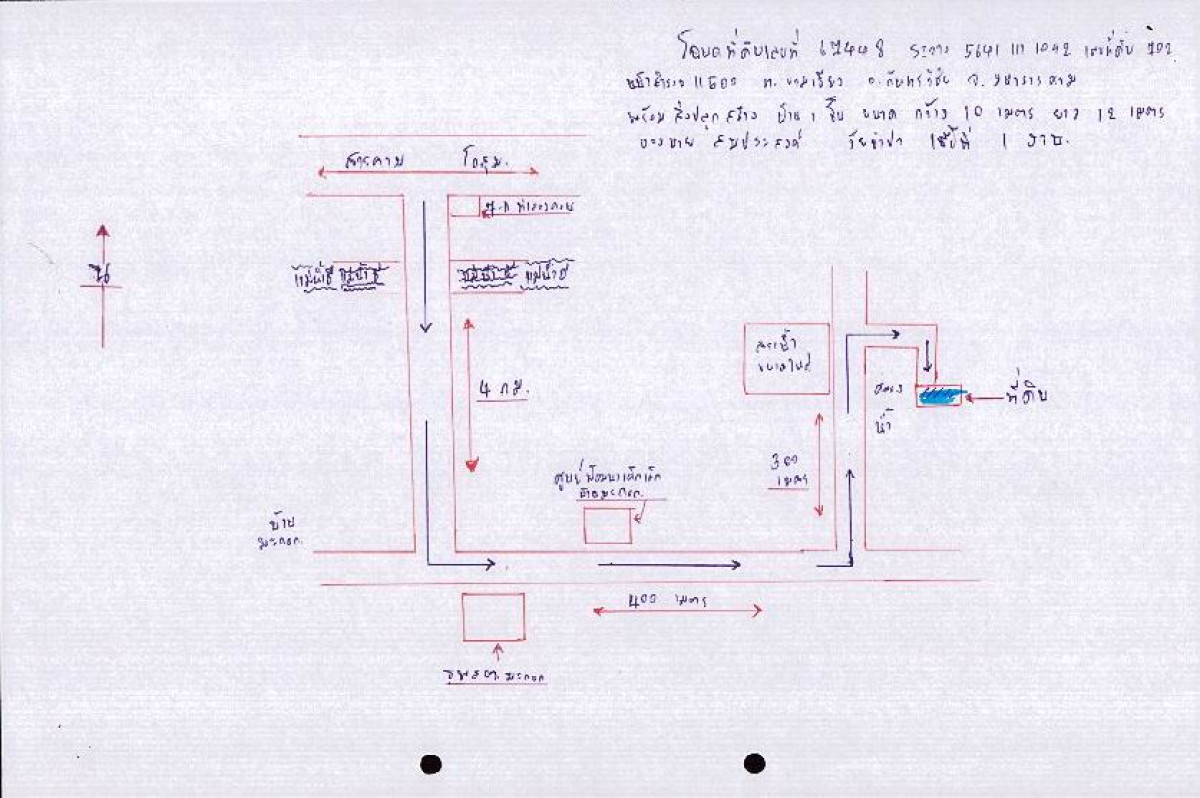 โฉนดที่ดินเลขที่ 67448 ระวาง 5641 III 1042 เลขที่ดิน 702
หน้าสำรวจ 11600 ต. ขามเรียง อ.กันทรวิชัย จ.มหาสารคาม
พร้อม สิ่งปลูกสร้าง บ้าน 1 ชั้น ขนาด กว้าง 10 เมตร ยาว 12 เมตร
ของนาย สมประสงค์ เนื้อที่ 1 งาน.
สารคาม โกสุม.
น
แม่น้ำชี แม่น้ำชี
แม่น้ำชี แม่น้ำชี
4 กม.
สระน้ำ
ขนาดใหญ่
คลอง
น้ำ
ที่ดิน
300
เมตร
ศูนย์พัฒนาเด็กเล็ก
บ้านมะกอก.
บ้าน
มะกอก.
400 เมตร
รพสต. มะกอก